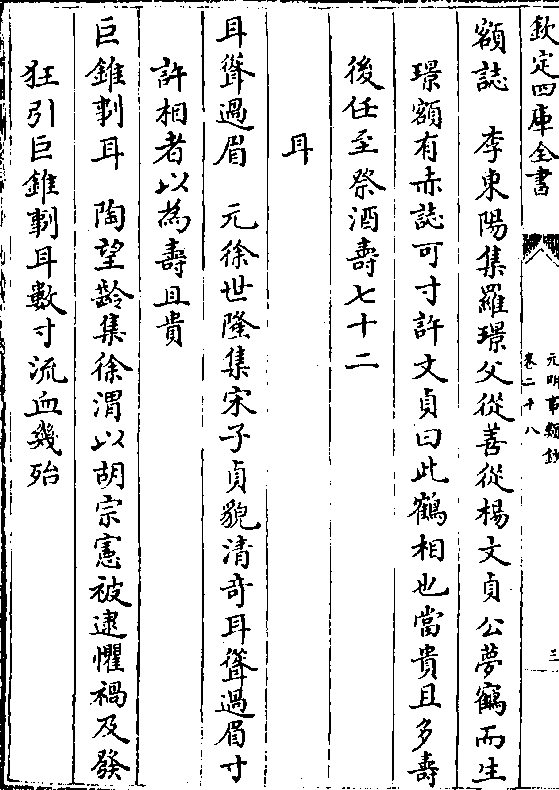 欽定四庫全書
元明事類鈔
卷二十八
三
額誌　李東陽集羅璟父從善從楊文貞公夢鶴而生
璟額有赤誌可寸許文貞曰此鶴相也當貴且多壽
後任至祭酒壽七十二
耳
耳聳過眉　元徐世隆集宋子貞貌清奇耳聳過眉寸
許相者以為壽且貴
巨錐剚耳　陶望齡集徐渭以胡宗憲被逮懼禍及發
狂引巨錐剚耳數寸流血幾殆